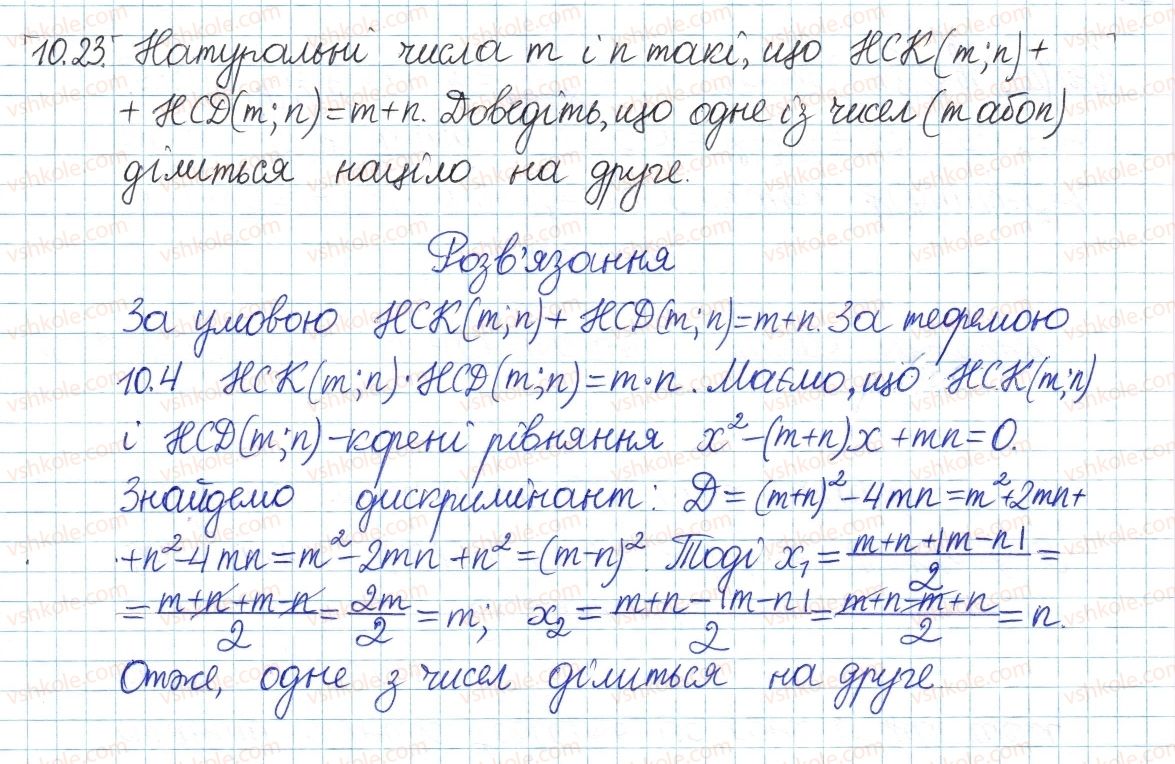 10.23. Натуральні числа m і n такі, що НСК(m;n)+
+ НСD(m;n)=m+n. Доведіть, що одне із чисел (m або n)
ділиться націло на друге.
Розв'язання
За умовою НСК(m;n)+ НСD(m;n)=m+n. За теоремою
10.4 НСК(m;n)·НСD(m;n)=m·n. Маємо, що НСК(m;n)
і НСD(m;n)-корені рівняння x²-(m+n)x+mn=0.
Знайдемо дискримінант: D=(m+n)²-4mn=m²+2mn+
+n²-4mn=m²-2mn+n²=(m-n)². Тоді x₁=(m+n+|m-n|)/2=
=(m+n+m-n)/2=2m/2=m; x₂=(m+n-|m-n|)/2=(m+n-m+n)/2=n.
Отже, одне з чисел ділиться на друге.